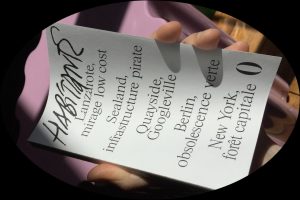 HABITANR
Lanzarote,
mirage low cost
Sealand,
infrastructure pirate
Quayside,
Googleville
Berlin,
obsolescence verte
New York,
forêt capitale
0